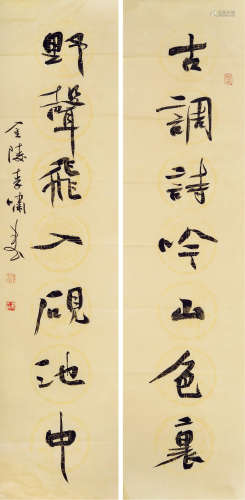 古調詩吟山色裏
野聲飛入硯池中
金陵李嘯